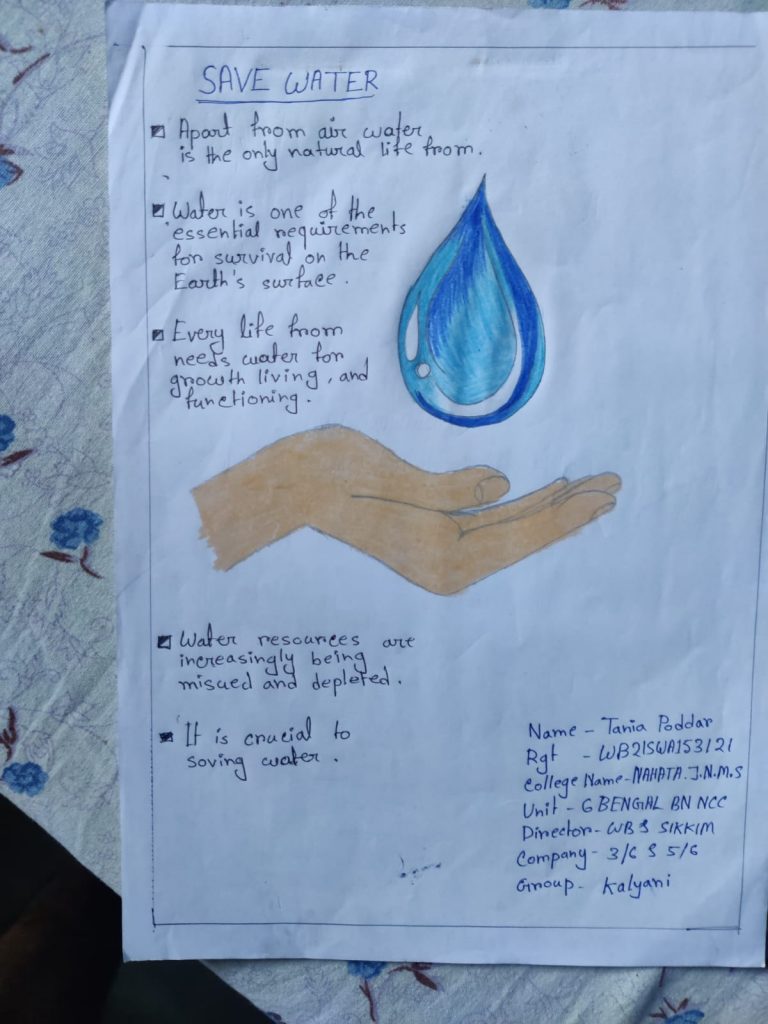 SAVE WATER
Apart from air water
is the only natural life from.
Water is one of the
essential requirements
for survival on the
Earth's surface.
Every life from
needs water for
growth living, and
functioning.
Water resources are
increasingly being
misued and depleted.
It is crucial to
soving water.
Name - Tania Poddar
Rgt - WB21SWA153121
College Name - NAHATA.J.N.M.S
Unit - 6 BENGAL BN NCC
Director - WB & SIKKIM
Company - 3/6 & 5/6
Group - Kalyani